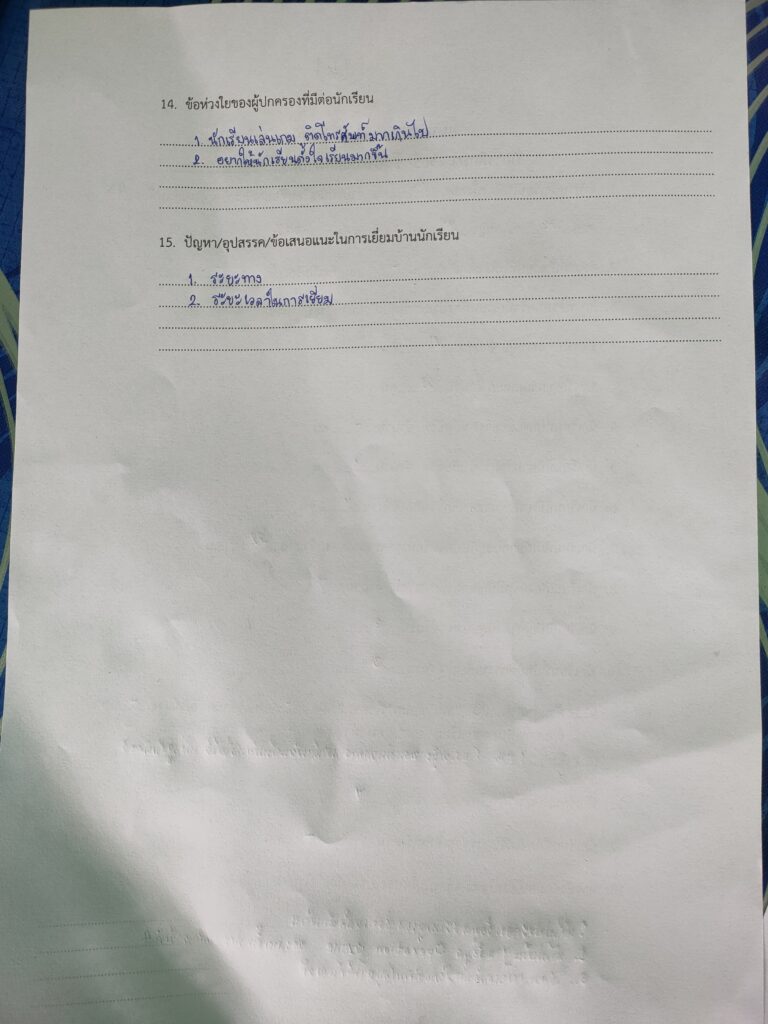 14. ข้อห่วงใยของผู้ปกครองที่มีต่อนักเรียน
1. นักเรียนเล่นเกม ติดโทรศัพท์มากเกินไป
2. อยากให้นักเรียนตั้งใจเรียนมากขึ้น
15. ปัญหา/อุปสรรค/ข้อเสนอแนะในการเยี่ยมบ้านนักเรียน
1. ระยะทาง
2. ระยะเวลาในการเยี่ยม